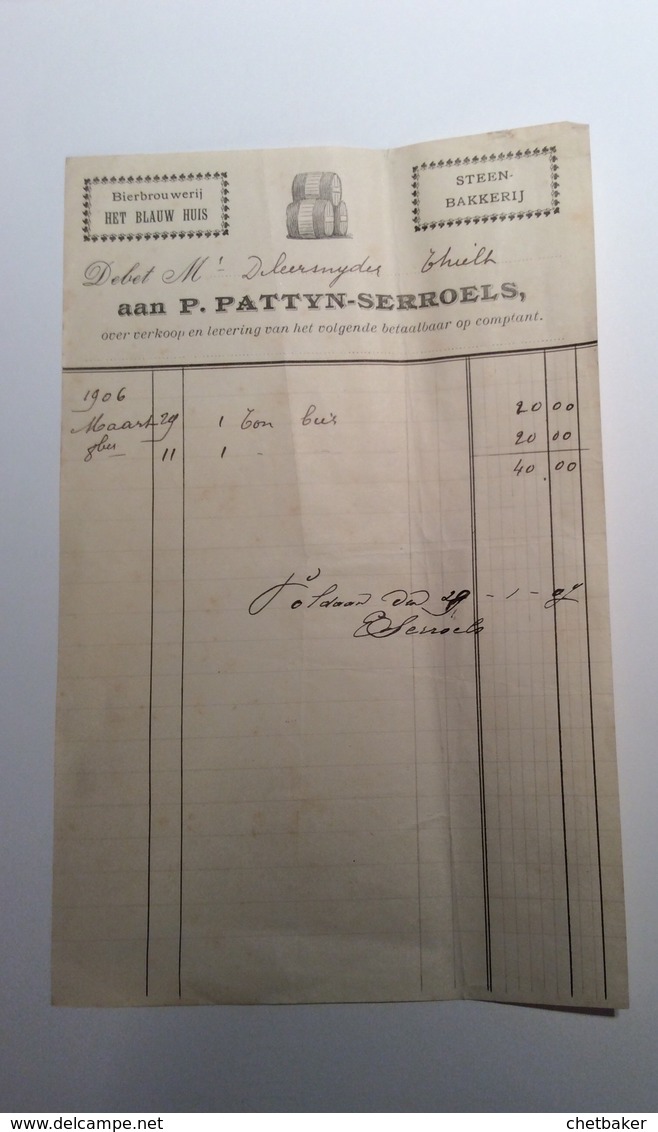 Bierbrouwerij
HET BLAUW HUIS
STEEN-
BAKKERIJ
Debet Mr Deleersnyder Thielt
aan P. PATTYN-SERROELS,
over verkoop en levering van het volgende betaalbaar op comptant.
1906
Maart 29 1 Ton bier 20 00
8ber 11 1 " 20 00
40.00
Voldaan den 29 - 1 - 07
E Serroels
www.delcampe.net
chetbaker